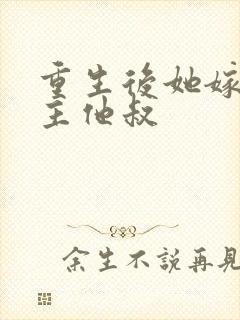 重生後她嫁
主他叔
余生不說再見